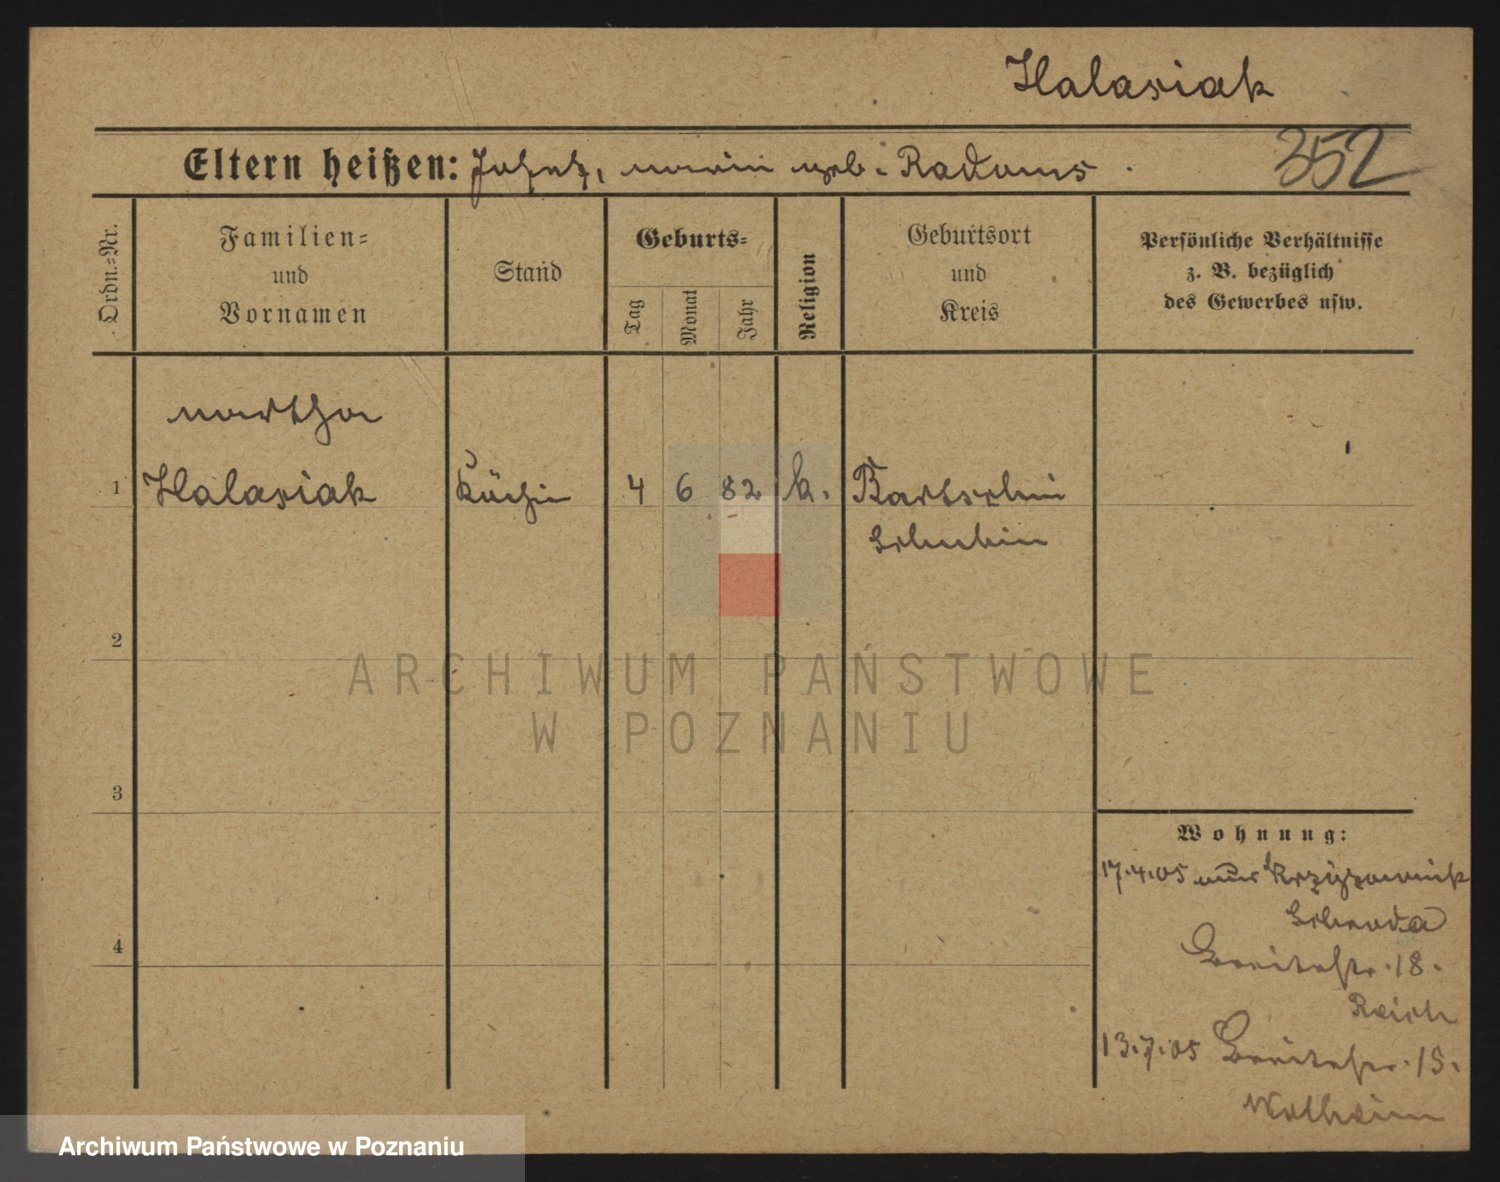 Halasiak
352
Eltern heißen: Josef, Marie geb. Radoms
Ordn.-Nr.
Familien-
und
Vornamen
Stand
Geburts-
Tag
Monat
Jahr
Religion
Geburtsort
und
Kreis
Persönliche Verhältnisse
z. B. bezüglich
des Gewerbes usw.
Martha
1 Halasiak Köchin 4 6 82 k. Bartschin
Schubin
2
3
4
Wohnung:
17.4.05 aus
Schroda
Breitestr. 18.
Reich
13.7.05 Breitestr. 15.
Wolheim
ARCHIWUM PAŃSTWOWE
W POZNANIU
Archiwum Państwowe w Poznaniu